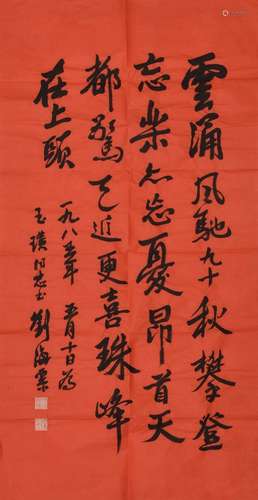 雲涌風馳九十秋攀登
忘樂亦忘憂昂首天
都驚天近更喜珠峰
在上頭
一九八五年 五月十日為
玉璞同志書 劉海粟